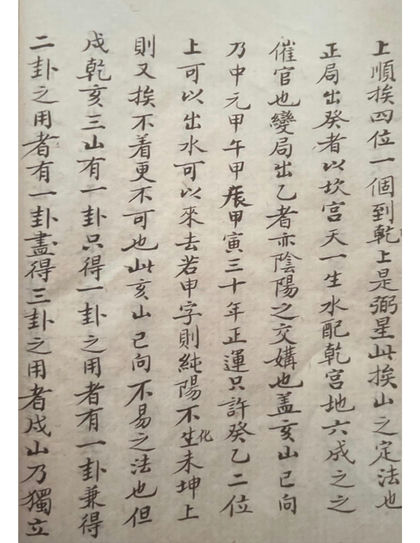 上順挨四位一個到乾上是弼星此挨山之定法也
正局出癸者以坎宮天一生水配乾宮地六成之之
催官也變局出乙者亦陰陽之交媾也蓋亥山巳向
乃中元甲午甲辰甲寅三十年正運只許癸乙二位
上可以出水可以來去若甲字則純陽不生化未坤上
則又挨不着更不可也此亥山巳向不易之法也但
戌乾亥三山有一卦只得一卦之用者有一卦兼得
二卦之用者有一卦盡得三卦之用者戌山乃獨立